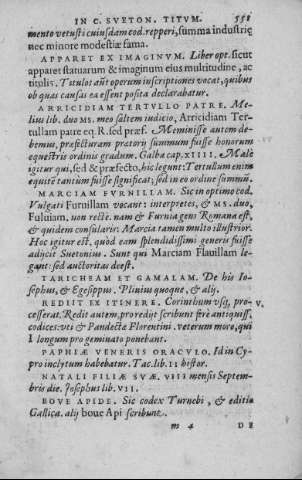 IN C. SVETON. TITVM. 551
mento vetusti cuiusdam cod. repperi, summa industrię
nec minore modestiæ fama.
APPARET EX IMAGINVM. Liber opt. sicut
apparet statuarum & imaginum eius multitudine, ac
titulis. Titulos aūt operum inscriptiones vocat, quibus
ob quas causas ea essent posita declarabatur.
ARRICIDIAM TERTVLLO PATRE. Me-
lius lib. duo MS. meo saltem iudicio, Arricidiam Ter-
tullam patre eq. R. sed præf. Meminisse autem de-
bemus, præfecturam pratorij summum fuisse honorum
equestris ordinis gradum. Galba cap. XIIII. Malè
igitur qui, sed & præfecto, hic legunt: Tertullum enim
equitē tantùm fuisse significat; sed in eo ordine summū.
MARCIAM FVRNILLAM. Sic in optimo cod.
Vulgati Furnillam vocant: interpretes, & MS. duo,
Fuluiam. non rectè. nam & Furnia gens Romana est,
& quidem consularis: Marcia tamen multo illustrior.
Hoc igitur est, quòd eam splendidissimi generis fuisse
adijcit Suetonius. Sunt qui Marciam Flauillam le-
gant: sed auctoritas deest.
TARICHEAM ET GAMALAM. De his Io-
sephus, & Egesippus. Plinius quoque, & alij.
REDIIT EX ITINERE. Corinthum vsq, pro- V.
cesserat. Redit autem, pro redijt scribunt ferè antiquiss.
codices: vti & Pandectæ Florentini. veterum more, qui
I longum pro geminato ponebant.
PAPHIÆ VENERIS ORACVLO. Id in Cy-
pro inclytum habebatur. Tac. lib. II histor.
NATALI FILIÆ SVÆ. VIII mensis Septem-
bris die. Josephus lib. VII.
BOVE APIDE. Sic codex Turnebi, & editio
Gallica. alij boue Api scribunt.
m 4 DE